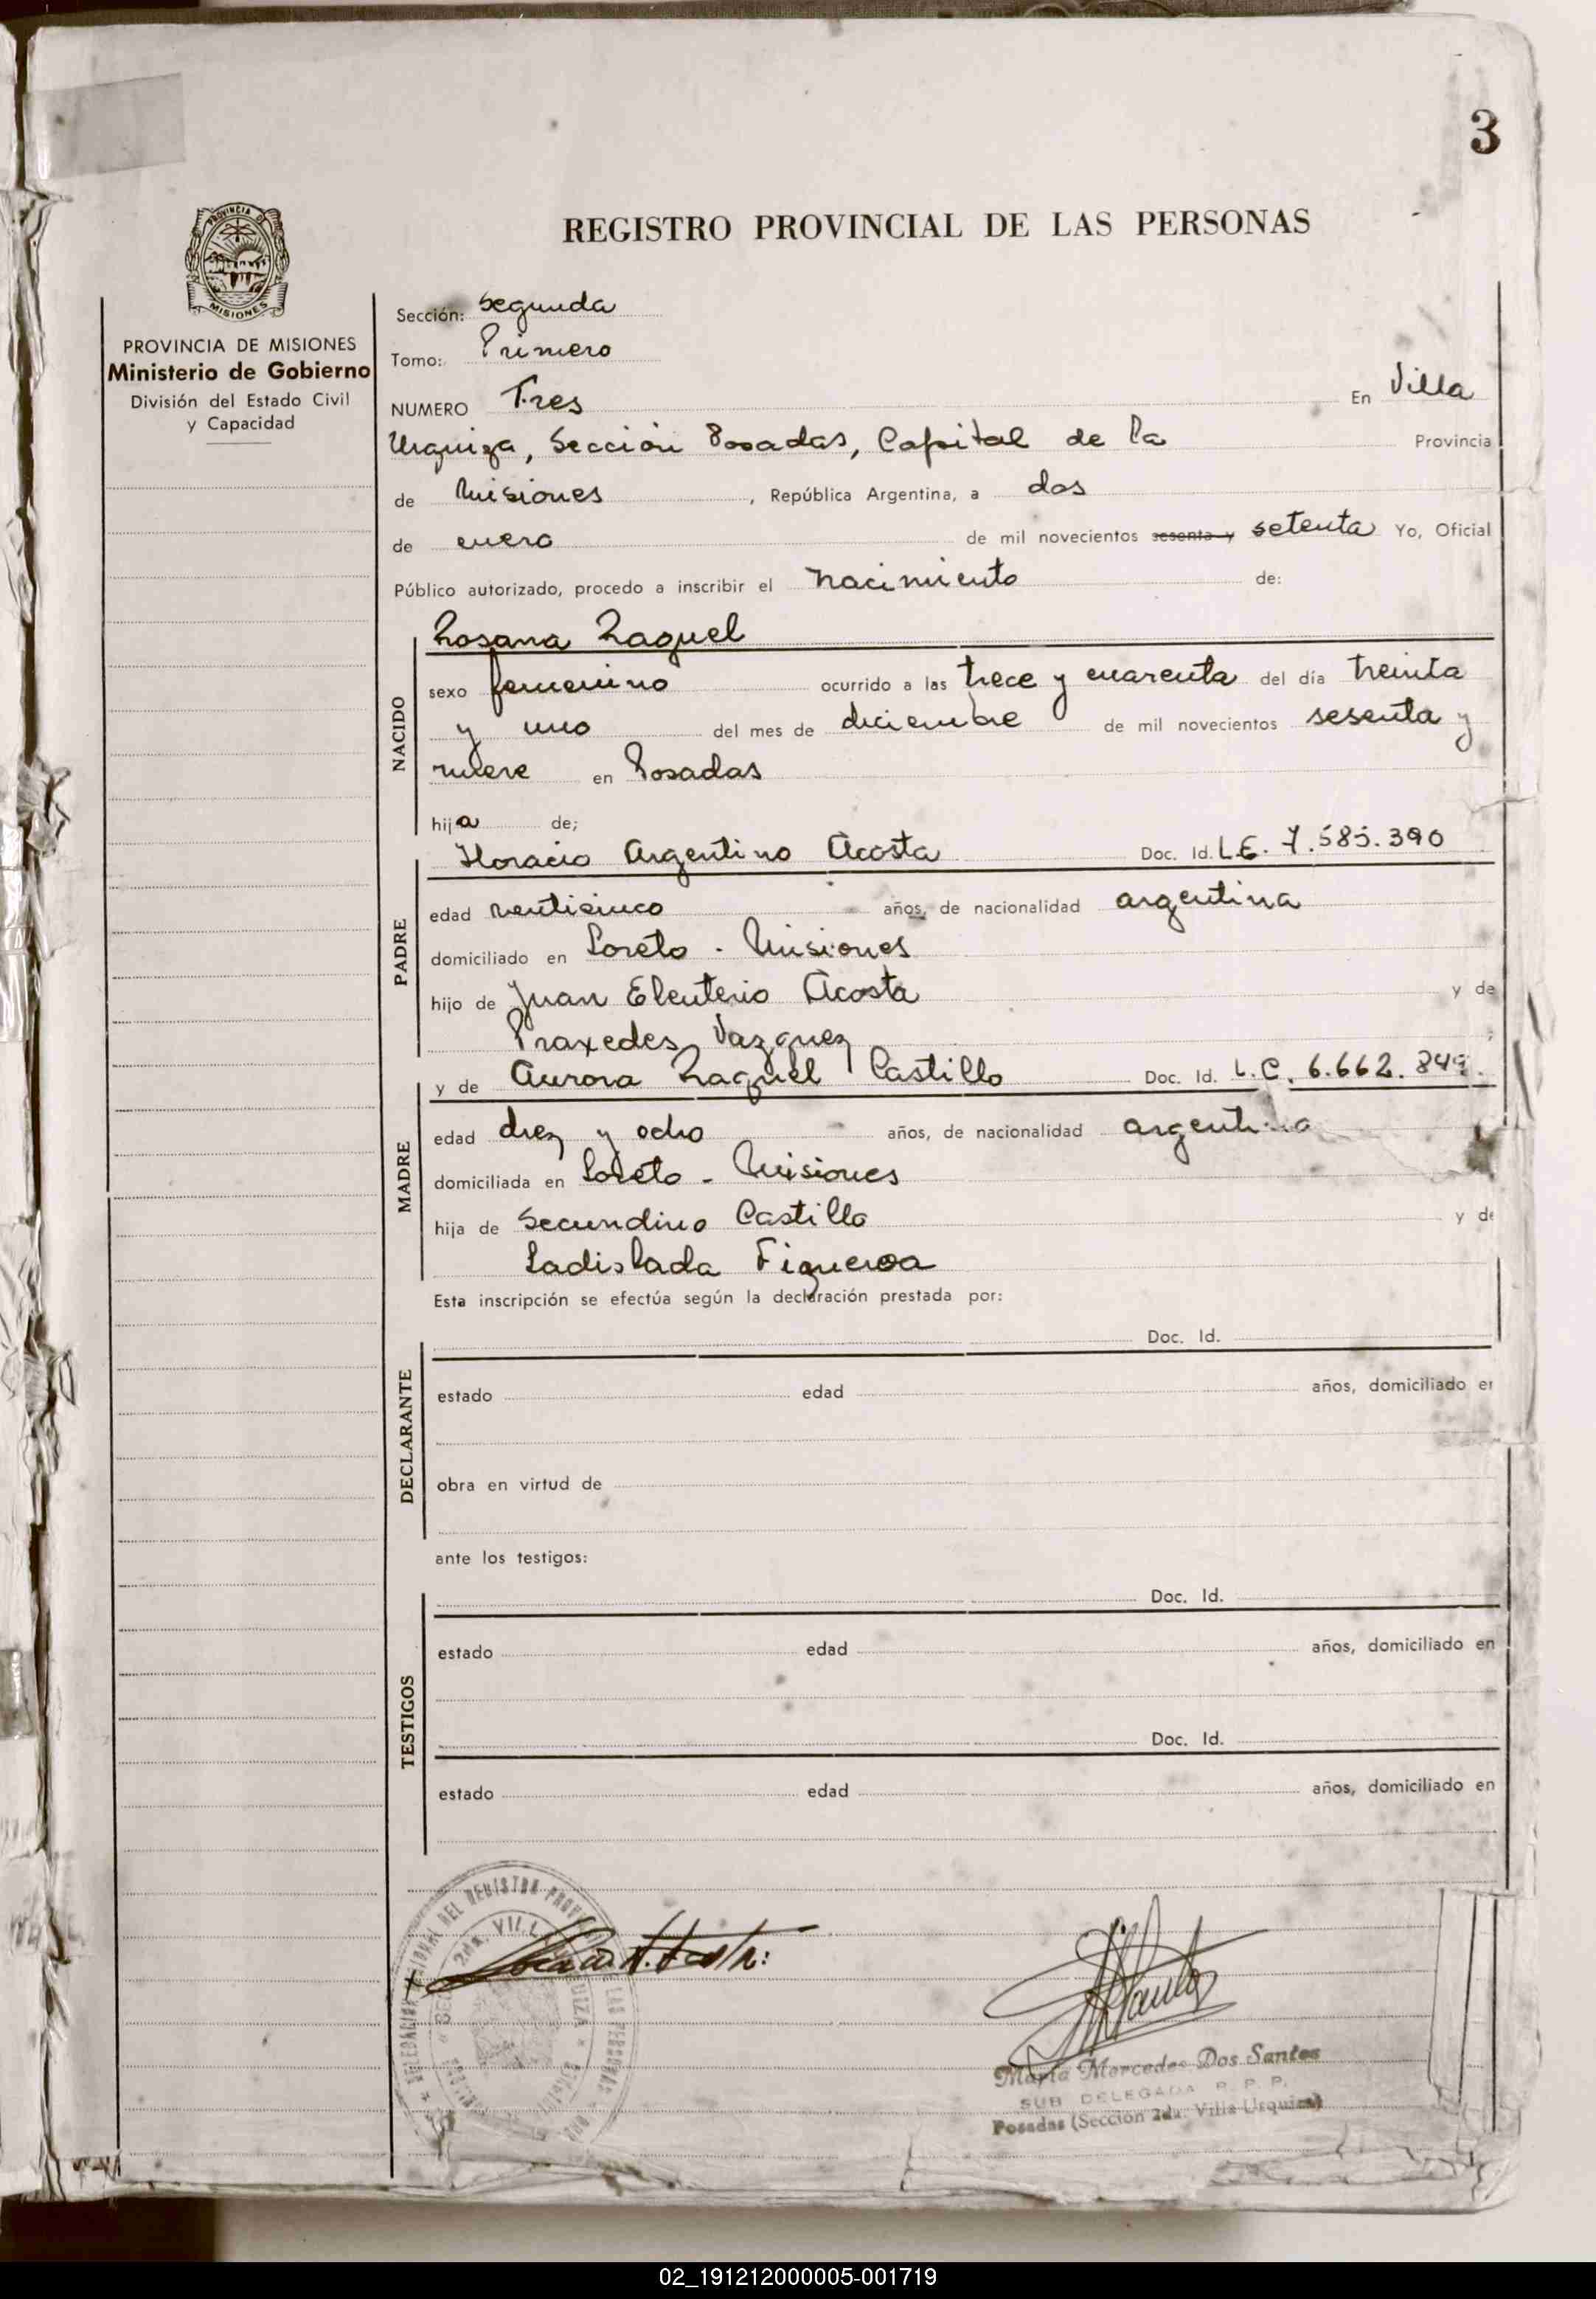 3
REGISTRO PROVINCIAL DE LAS PERSONAS
PROVINCIA DE
MISIONES
PROVINCIA DE MISIONES
Ministerio de Gobierno
División del Estado Civil
y Capacidad
Sección: Segunda
Tomo: Primero
NUMERO Tres En Villa
Urquiza, Sección Posadas, Capital de la Provincia
de Misiones, República Argentina, a dos
de enero de mil novecientos sesenta y setenta Yo, Oficial
Público autorizado, procedo a inscribir el nacimiento de:
NACIDO
Rosana Raquel
sexo femenino ocurrido a las trece y cuarenta del día treinta
y uno del mes de diciembre de mil novecientos sesenta y
nueve en Posadas
hija de;
PADRE
Horacio Argentino Acosta Doc. Id. L.E. 7.585.390
edad venticinco años, de nacionalidad argentina
domiciliado en Loreto - Misiones
hijo de Juan Eleuterio Acosta y de
Praxedes Vazquez ;
MADRE
y de Aurora Raquel Castillo Doc. Id. L.C. 6.662.849.
edad diez y ocho años, de nacionalidad argentina
domiciliada en Loreto - Misiones
hija de Secundino Castillo y de
Ladislada Figueroa
Esta inscripción se efectúa según la declaración prestada por:
DECLARANTE
Doc. Id.
estado edad años, domiciliado en
obra en virtud de
ante los testigos:
TESTIGOS
Doc. Id.
estado edad años, domiciliado en
Doc. Id.
estado edad años, domiciliado en
DEL REGISTRO
2da. VILLA
María Mercedes Dos Santos
SUB DELEGADA R. P. P.
Posadas (Sección 2da. Villa Urquiza)
02_191212000005-001719